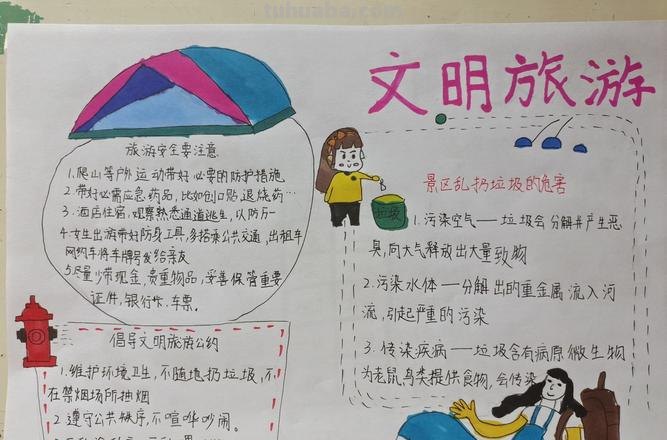 tuhuaba.com
文明旅游
旅游安全要注意
1.爬山等户外运动带好必要的防护措施
2.带好必需应急药品,比如创口贴退烧药…
3.酒店住宿,观察熟悉通道逃生,以防万一
4.女生出游带好防身工具,多搭乘公共交通,出租车
网约车将车牌号发给亲友
5.尽量少带现金,贵重物品,妥善保管重要
证件,银行卡,车票。
垃圾
景区乱扔垃圾的危害
1.污染空气——垃圾会分解并产生恶
臭,向大气释放出大量致物
2.污染水体——分解出的重金属流入河
流,引起严重的污染
3.传染疾病——垃圾含有病原微生物
为老鼠,鸟类提供食物,会传染
倡导文明旅游公约
1.维护环境卫生,不随地扔垃圾,不
在禁烟场所抽烟
2.遵守公共秩序,不喧哗吵闹。